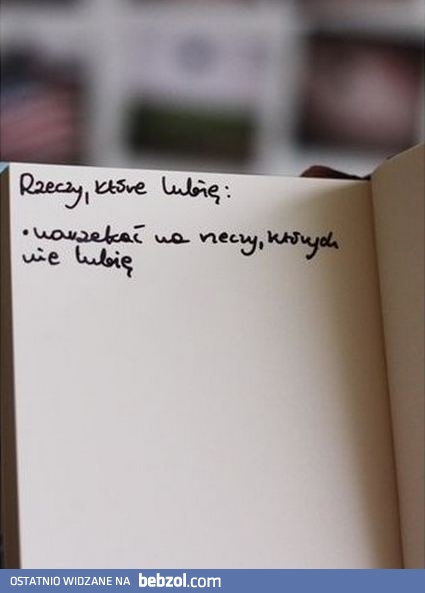 Rzeczy, które lubię:
• narzekać na rzeczy, których
nie lubię
OSTATNIO WIDZANE NA bebzol.com